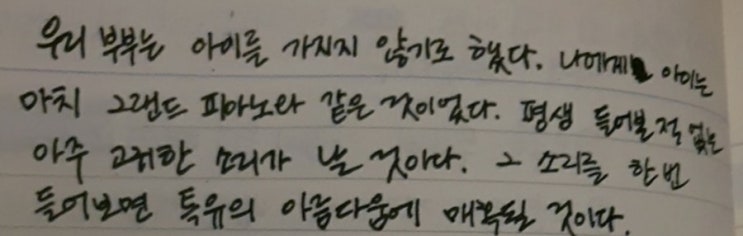 우리 부부는 아이를 가지지 않기로 했다. 나에게 아이는
마치 그랜드 피아노와 같은 것이었다. 평생 들어볼 적 없는
아주 고귀한 소리가 날 것이다. 그 소리를 한 번
들어보면 특유의 아름다움에 매혹될 것이다.